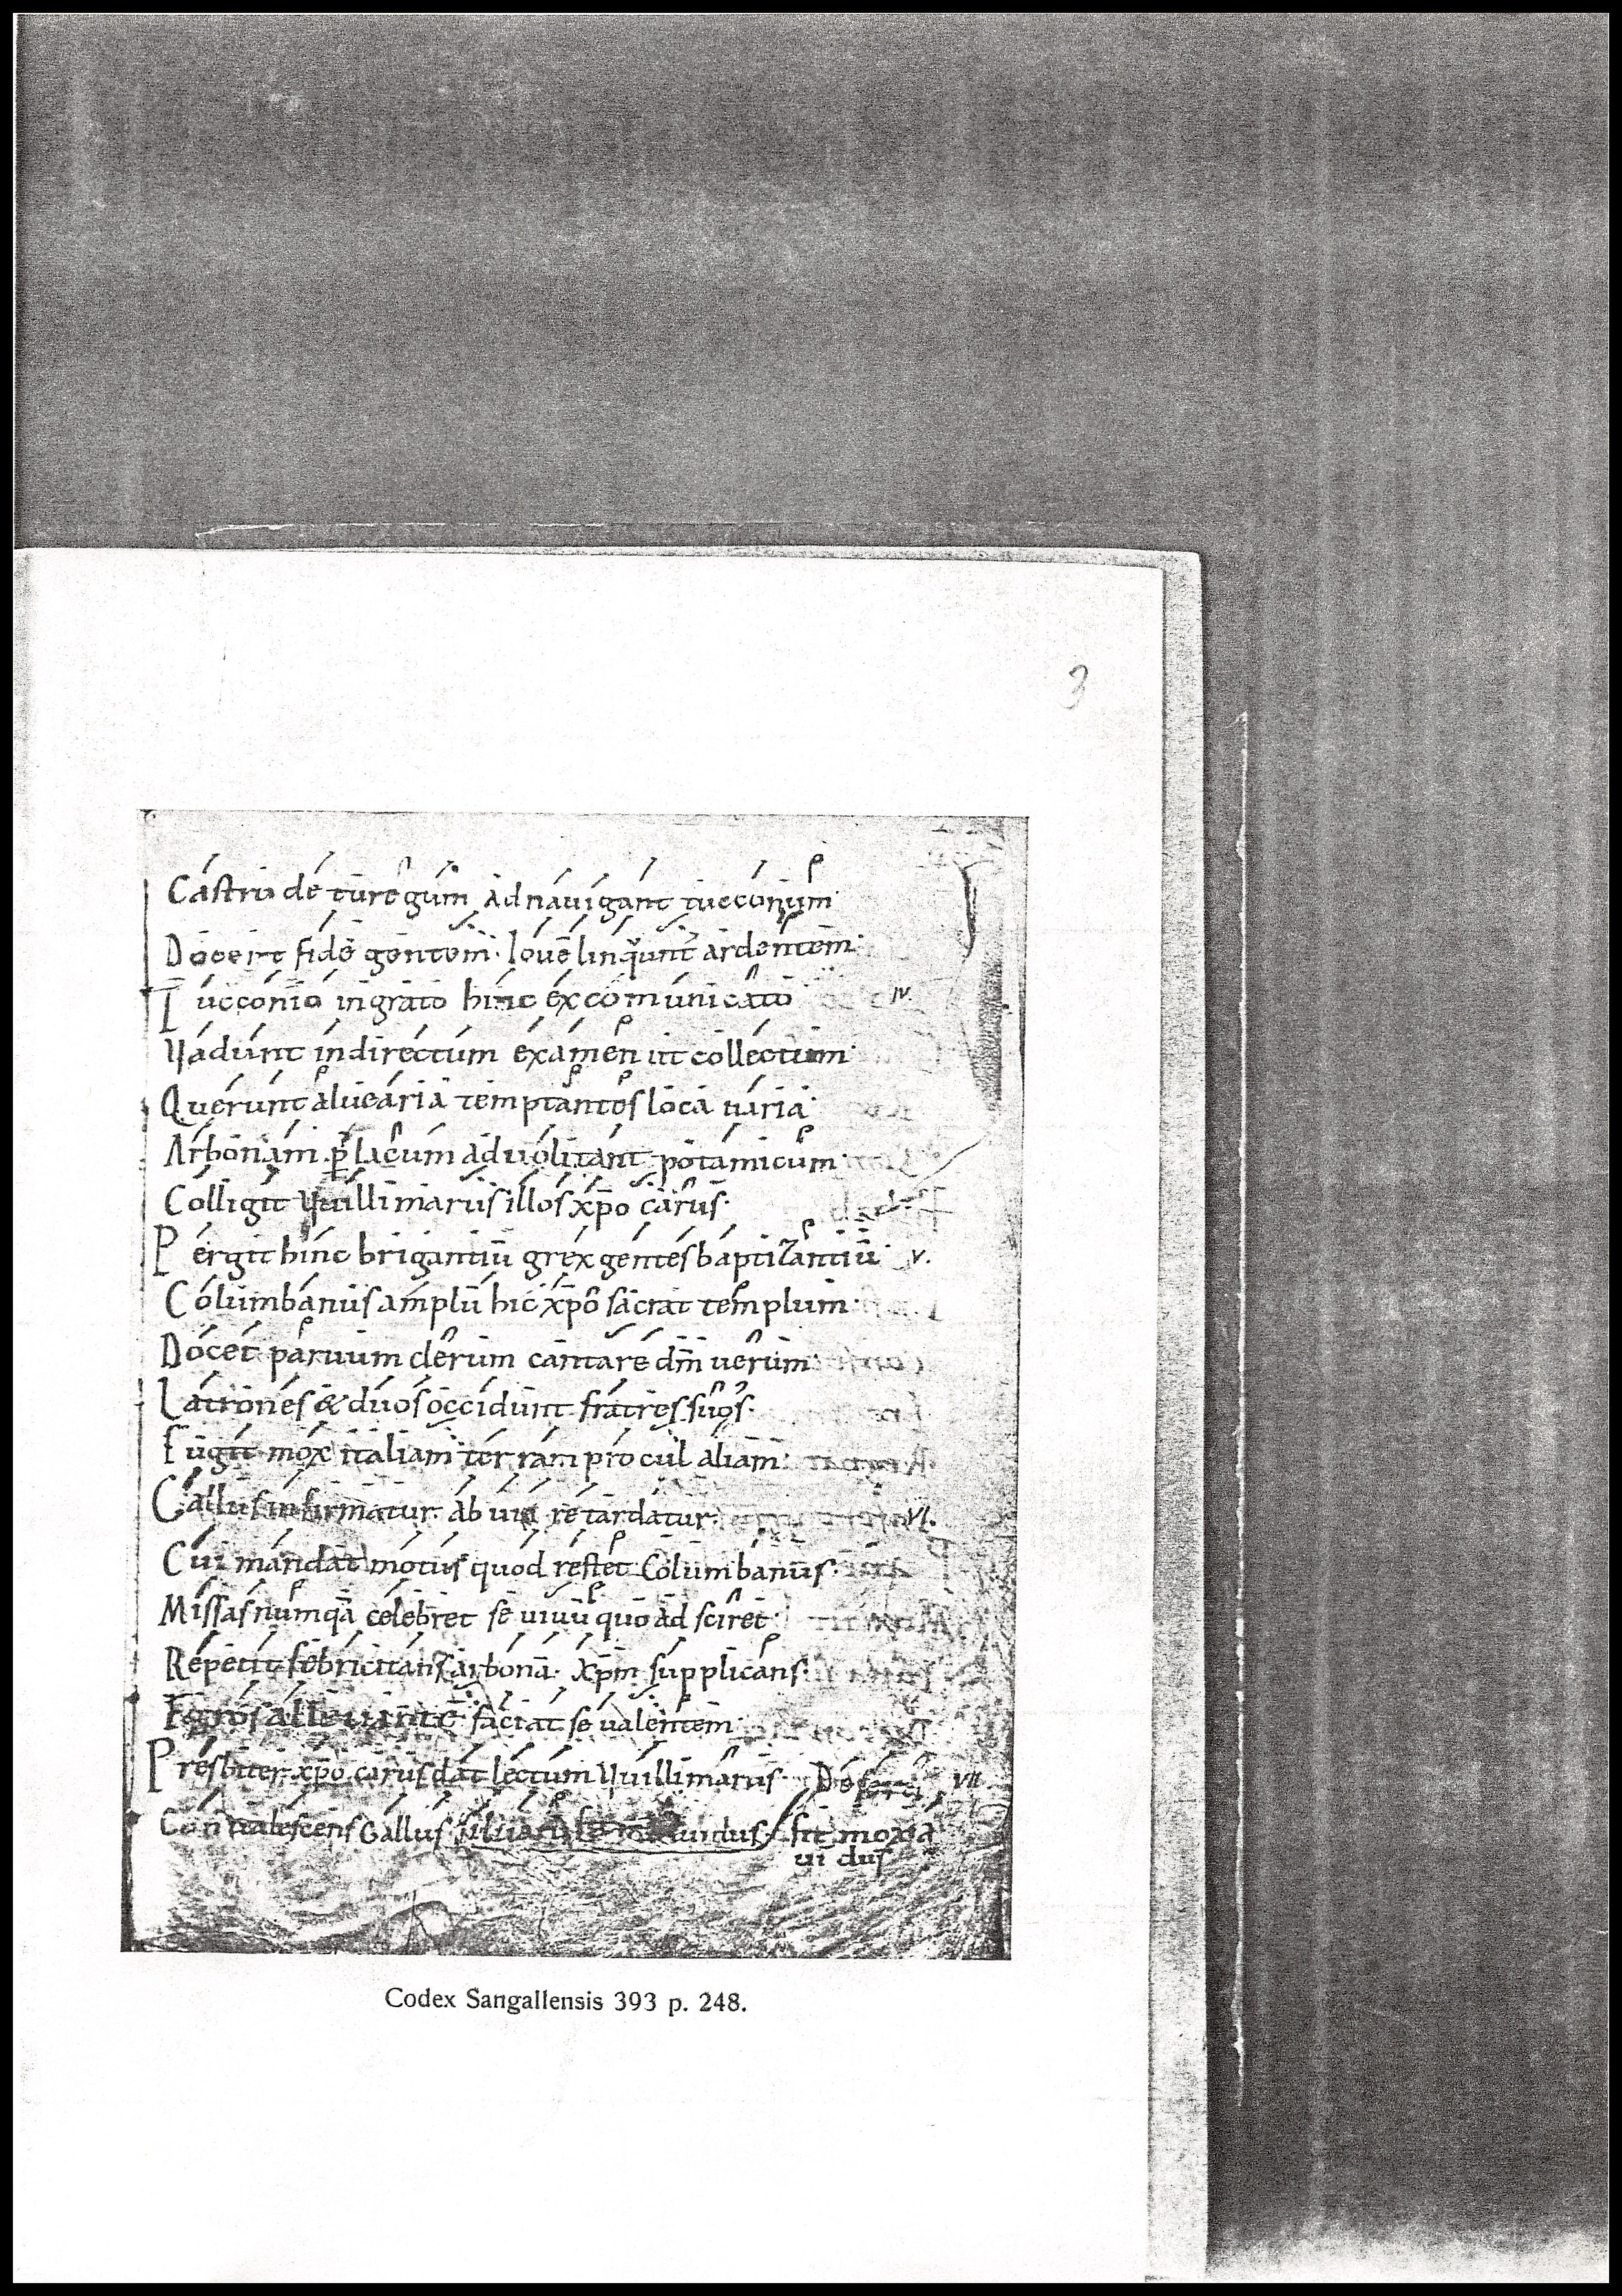 3
Castro de turegum adnauigant tucconium
Docent fidē gentem· Iouē linquunt ardentem·
Tucconio ingrato hinc excomunicato IV.
Uadunt indirectum examen ut collectum·
Querunt aluearia temptantes loca uaria·
Arboniam p̱ lacum aduolitant potamicum·
Colligit Uuillimarus illos xp̄o carus·
Pergit hinc brigantiū grex gentes baptizantiū V.
Columbanus amplū hic xp̄o sacrat templum·
Docet paruum clerum cantare dm̄ uerum·
Latrones & duos occidunt fratres suos·
Fugit mox italiam terram procul aliam·
Gallus infirmatur· ab uia retardatur· VI.
Cui mandat motus quod restet Columbanus·
Missas numquā celebret se uiuū quoad sciret·
Repetit febricitans arbonā· xp̄m supplicans·
Egros alleuante faciat se ualentem·
Presbiter xp̄o carus dat lectum Uuillimarus· VII
Conualescens Gallus sit mox a
ui dus
Codex Sangallensis 393 p. 248.